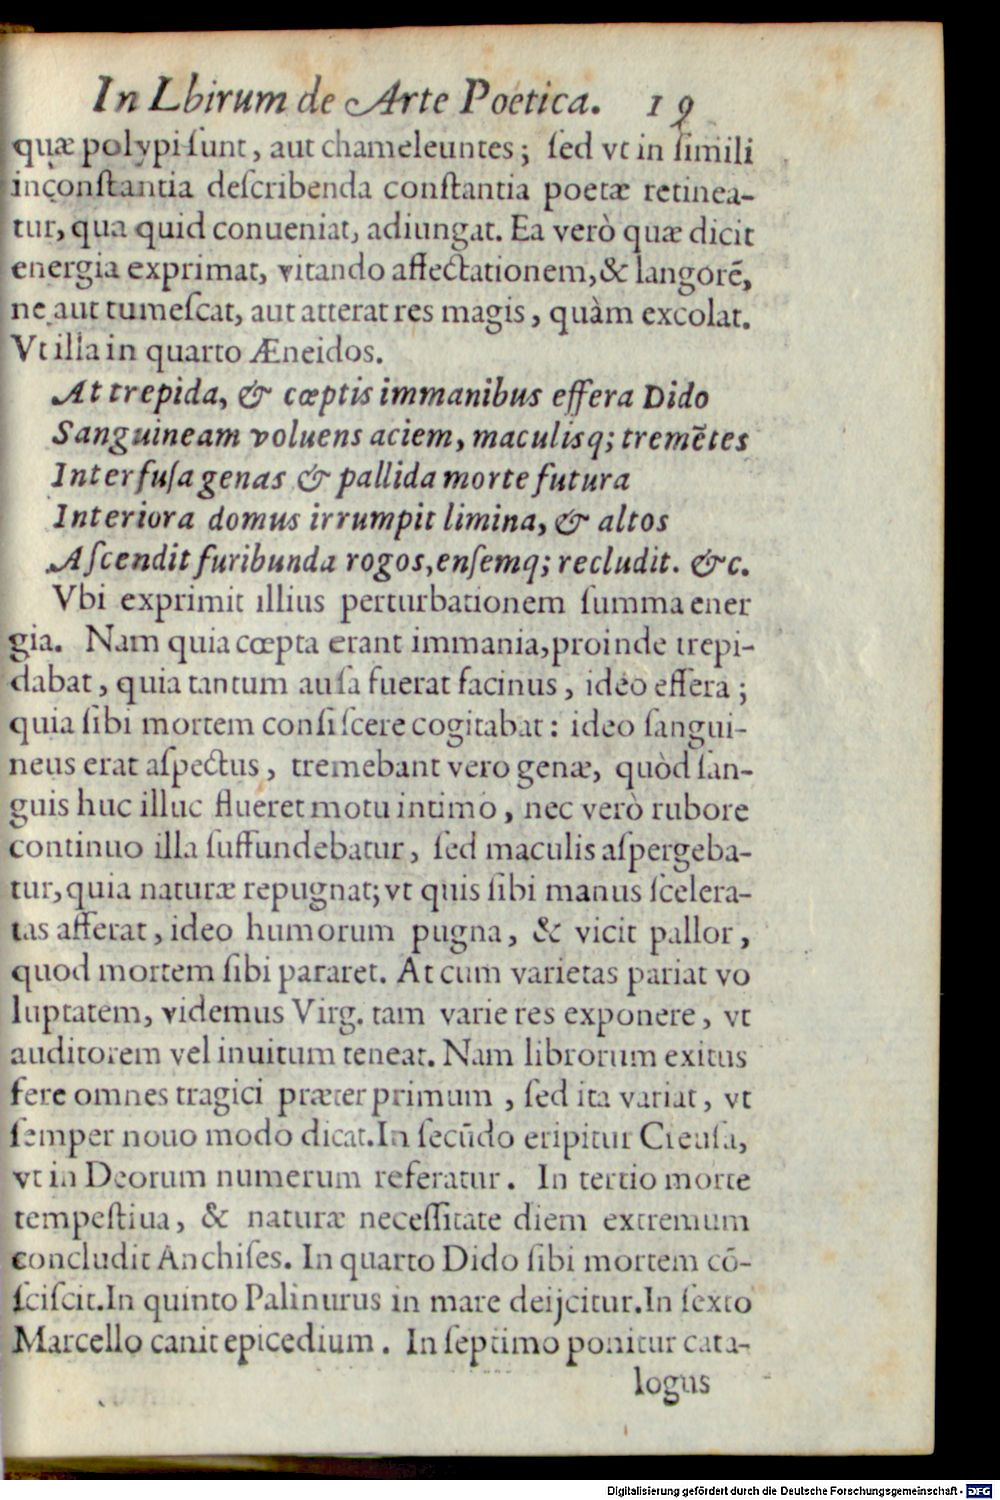 In Lbirum de Arte Poetica. 19
quæ polypi sunt, aut chameleuntes; sed vt in simili
inconstantia describenda constantia poetæ retinea-
tur, qua quid conueniat, adiungat. Ea verò quæ dicit
energia exprimat, vitando affectationem, & langorē,
ne aut tumescat, aut atterat res magis, quàm excolat.
Vt illa in quarto Æneidos.
At trepida, & cœptis immanibus effera Dido
Sanguineam voluens aciem, maculisq; tremētes
Interfusa genas & pallida morte futura
Interiora domus irrumpit limina, & altos
Ascendit furibunda rogos, ensemq; recludit. &c.
Vbi exprimit illius perturbationem summa ener
gia. Nam quia cœpta erant immania, proinde trepi-
dabat, quia tantum ausa fuerat facinus, ideo effera;
quia sibi mortem consiscere cogitabat: ideo sangui-
neus erat aspectus, tremebant vero genæ, quòd san-
guis huc illuc flueret motu intimo, nec verò rubore
continuo illa suffundebatur, sed maculis aspergeba-
tur, quia naturæ repugnat; vt quis sibi manus scelera-
tas afferat, ideo humorum pugna, & vicit pallor,
quod mortem sibi pararet. At cum varietas pariat vo
luptatem, videmus Virg. tam varie res exponere, vt
auditorem vel inuitum teneat. Nam librorum exitus
fere omnes tragici præter primum, sed ita variat, vt
semper nouo modo dicat. In secūdo eripitur Creusa,
vt in Deorum numerum referatur. In tertio morte
tempestiua, & naturæ necessitate diem extremum
concludit Anchises. In quarto Dido sibi mortem cō-
sciscit. In quinto Palinurus in mare deijcitur. In sexto
Marcello canit epicedium. In septimo ponitur cata-
logus
Digitalisierung gefördert durch die Deutsche Forschungsgemeinschaft - DFG